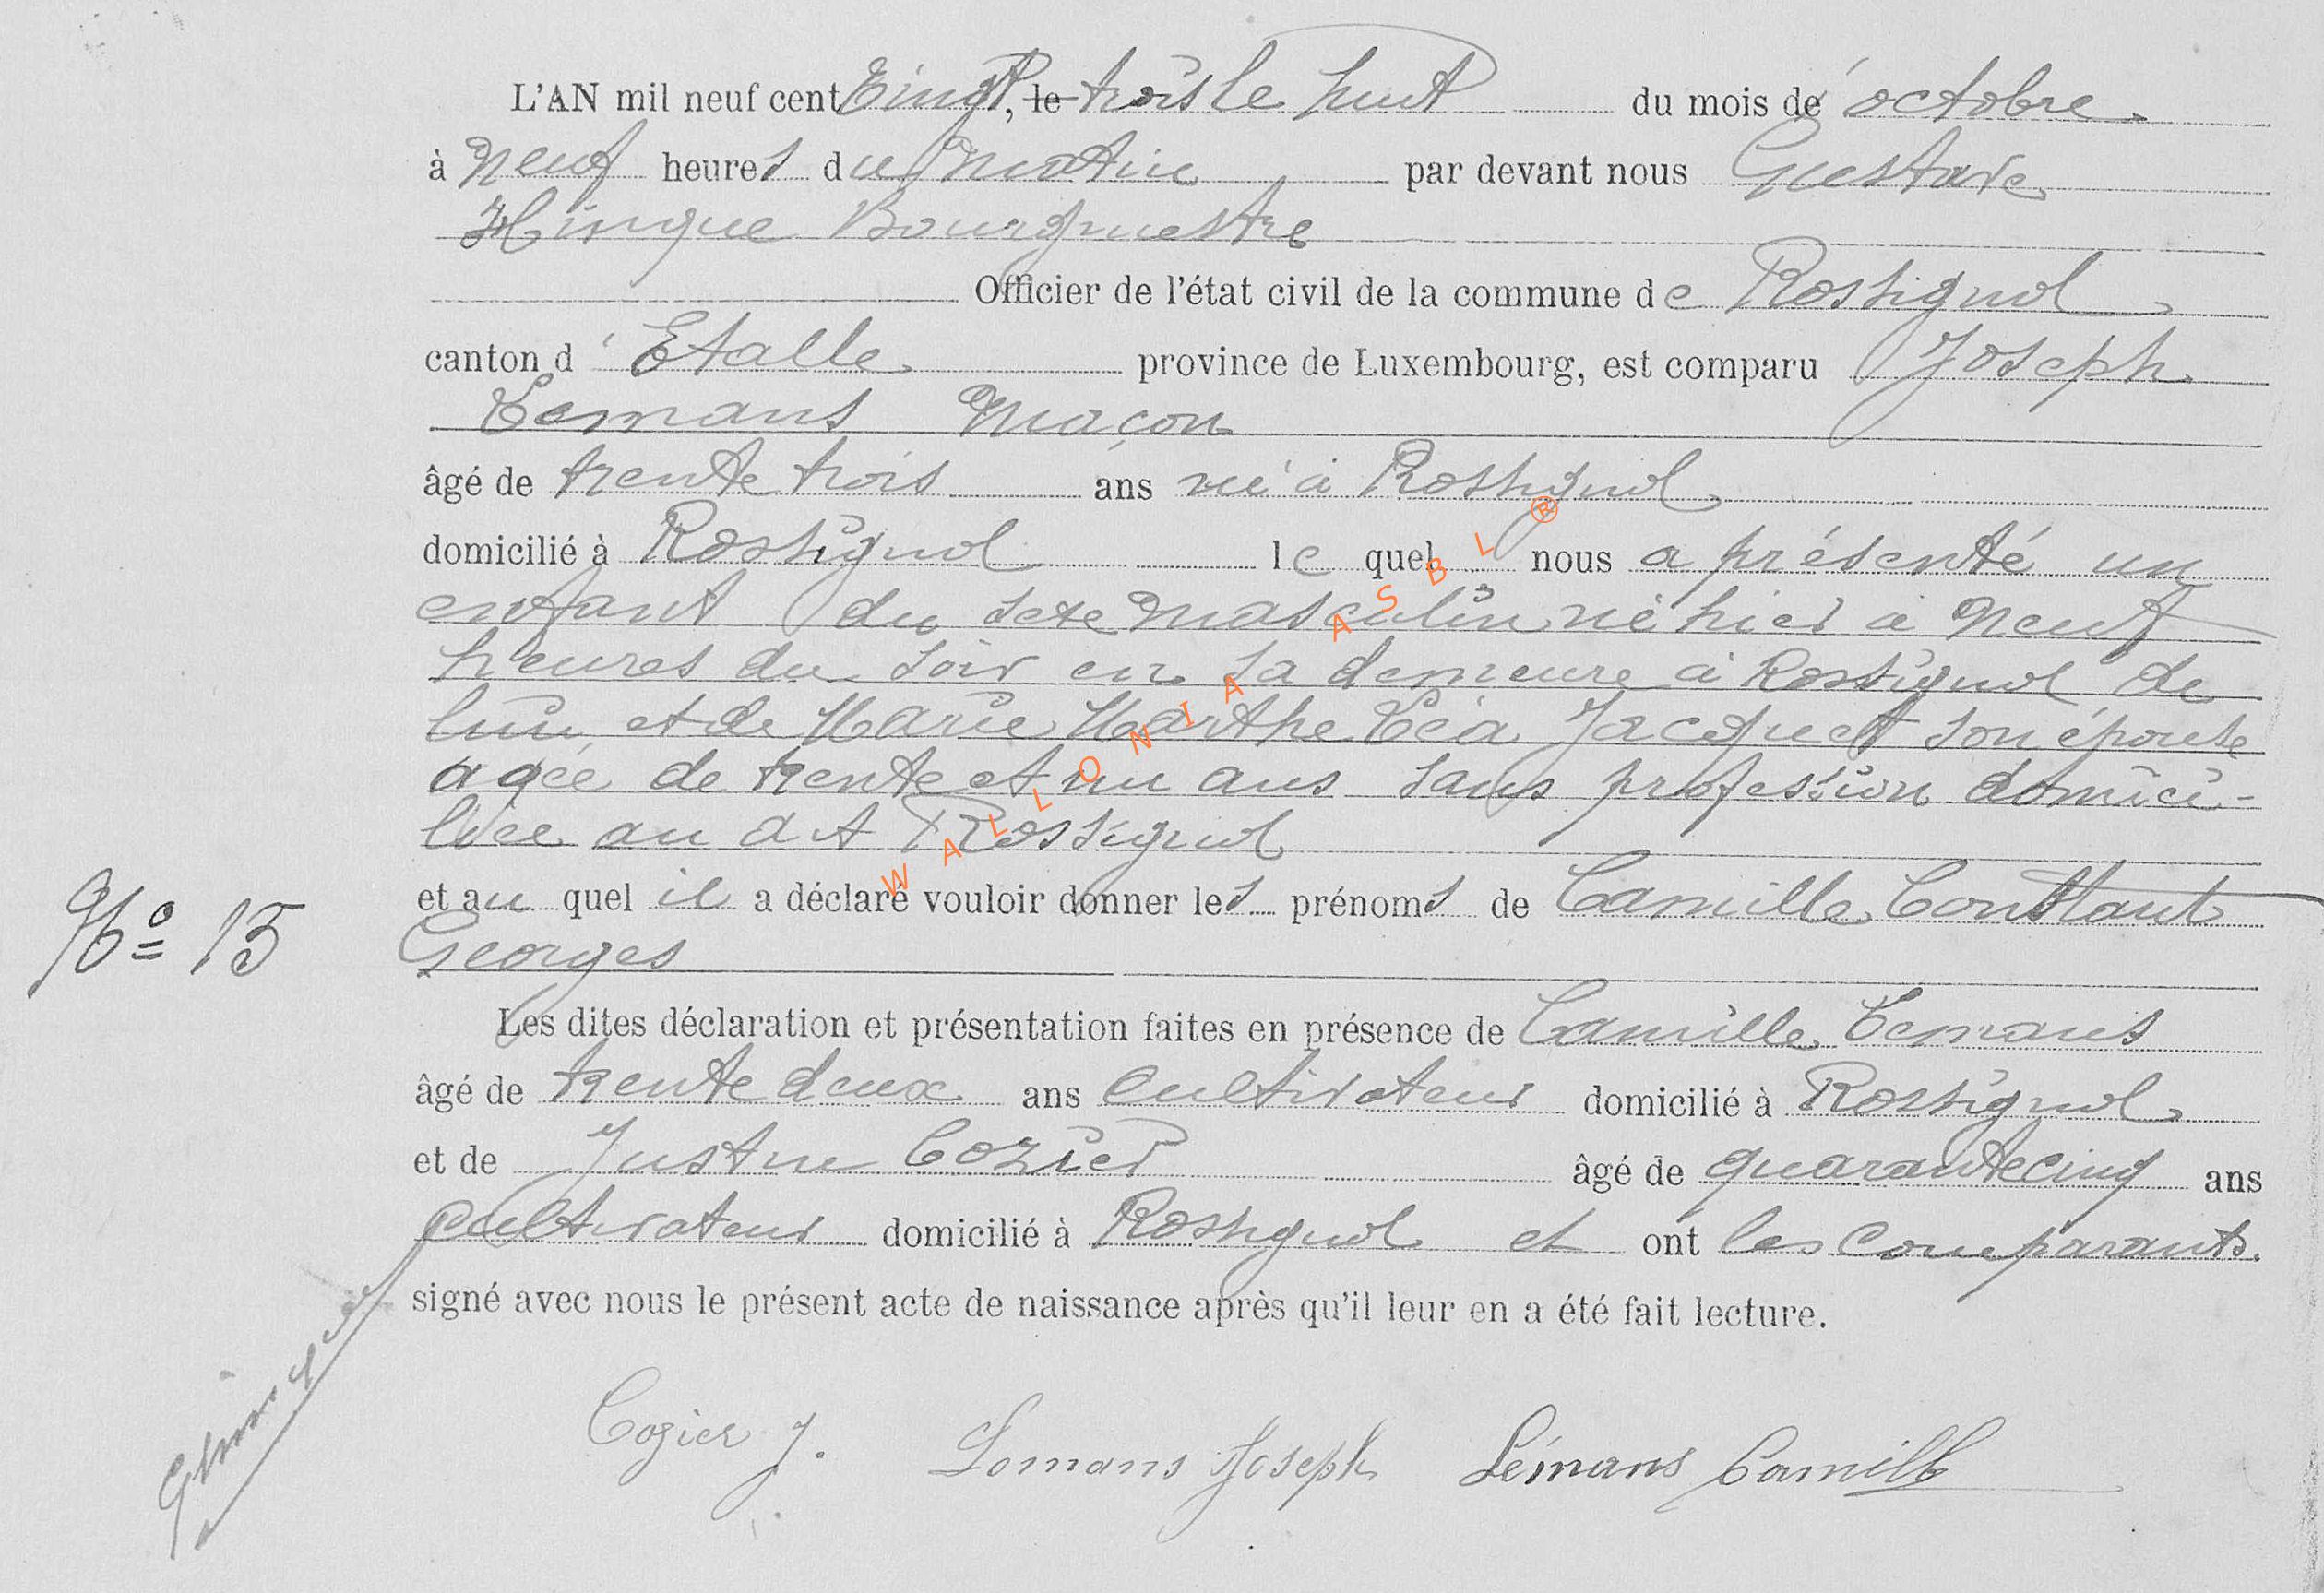 L'AN mil neuf cent vingt, le trois le huit du mois de octobre
à neuf heures du matin par devant nous Gustave
Hinque Bourgmestre
Officier de l'état civil de la commune de Rossignol
canton d'Etalle province de Luxembourg, est comparu Joseph
Lemans maçon
âgé de trente trois ans né à Rossignol
domicilié à Rossignol le quel nous a présenté un
enfant du sexe masculin né hier à neuf
heures du soir en sa demeure à Rossignol de
lui et de Marie Marthe Léa Jacquet son épouse
agée de trente et un ans sans profession domici-
liée au dit Rossignol
et au quel il a déclaré vouloir donner les prénoms de Camille Constant
Georges
N° 15
Les dites déclaration et présentation faites en présence de Camille Lemans
âgé de trente deux ans cultivateur domicilié à Rossignol
et de Justin Cozier âgé de quarante cinq ans
cultivateur domicilié à Rossignol et ont les comparants
signé avec nous le présent acte de naissance après qu'il leur en a été fait lecture.
Cozier J. Lemans Joseph Lémans Camille
WALLONIA ASBL ®